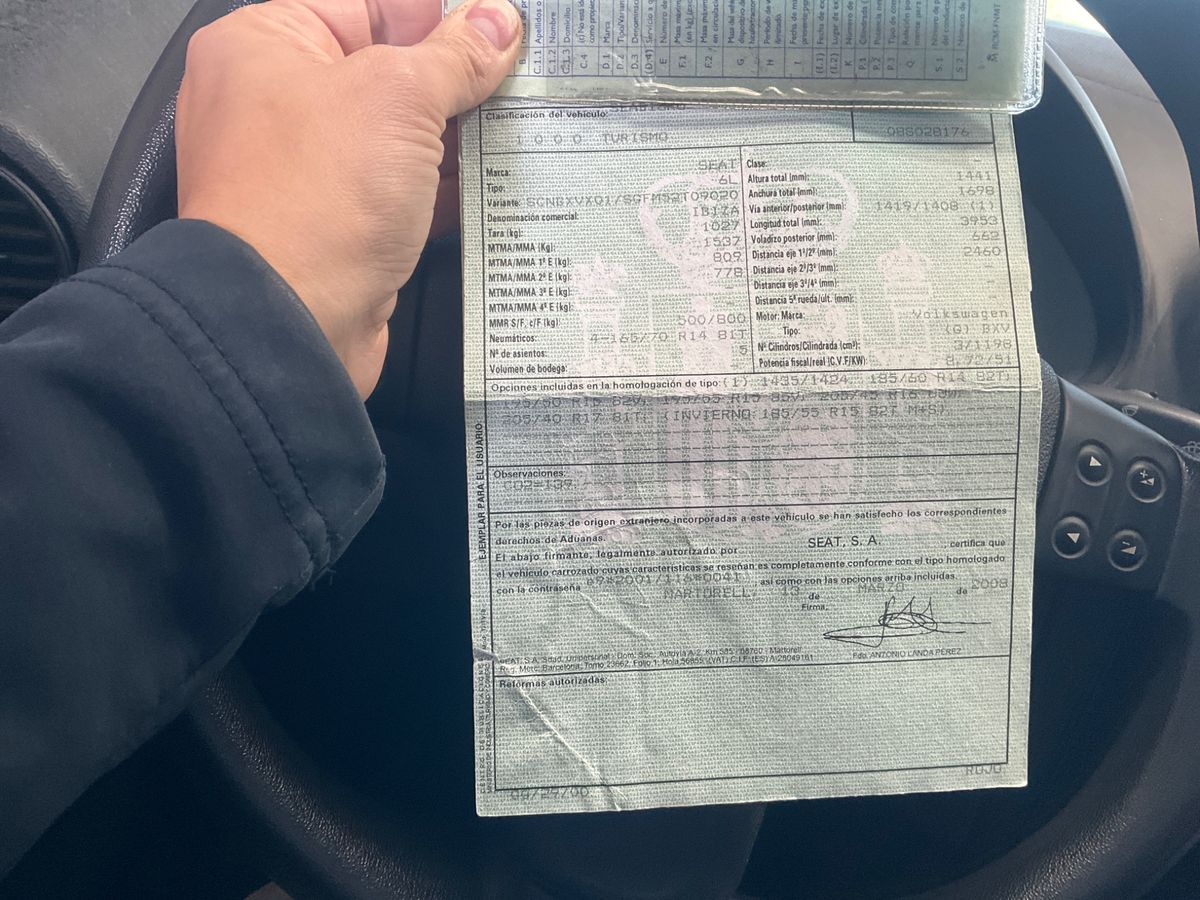 B
C.1.1 Apellidos o
C.1.2 Nombre
C.1.3 Domicilio
C.4
D.1 Marca
D.2
D.3
(D.4) Servicio a
E Número de
F.1
F.2
G
H
I
(I.1)
(I.2)
K Número de
P.1 Cilindrada
P.2 Potencia
P.3 Tipo de
Q
S.1
S.2
Clasificación del vehículo:
1000 TURISMO
08S028176
Marca: SEAT
Tipo: 6L
Variante: SCNBXVX01/SGFM52T09020
Denominación comercial: IBIZA
Tara (kg): 1027
MTMA/MMA (Kg): 1537
MTMA/MMA 1º E (kg): 809
MTMA/MMA 2º E (kg): 778
MTMA/MMA 3º E (kg): -
MTMA/MMA 4º E (kg): -
MMR S/F. c/F (kg): 500/800
Neumáticos: 4-165/70 R14 81T
Nº de asientos: 5
Volumen de bodega:
Clase: -
Altura total (mm): 1441
Anchura total (mm): 1698
Vía anterior/posterior (mm): 1419/1408 (1)
Longitud total (mm): 3953
Voladizo posterior (mm): 662
Distancia eje 1º/2º (mm): 2460
Distancia eje 2º/3º (mm): -
Distancia eje 3º/4º (mm): -
Distancia 5ª rueda/ult. (mm): -
Motor: Marca: Volkswagen
Tipo: (G) BXV
Nº Cilindros/Cilindrada (cm³): 3/1198
Potencia fiscal/real (C.V.F/KW): 8,72/51
Opciones incluidas en la homologación de tipo: (1) 1435/1424, 185/60 R14 82T;
195/50 R15 82V; 195/55 R15 85V; 205/45 R16
205/40 R17 81T; (INVIERNO 185/55 R15 82T M+S).
Observaciones:
CO2=139
Por las piezas de origen extranjero incorporadas a este vehículo se han satisfecho los correspondientes
derechos de Aduanas.
El abajo firmante, legalmente autorizado por SEAT, S. A. , certifica que
el vehículo carrozado cuyas características se reseñan es completamente conforme con el tipo homologado
con la contraseña e9*2001/116*0041 así como con las opciones arriba incluidas.
MARTORELL, 13 de MARZO de 2008
Firma,
SEAT, S.A. Sdad. Unipersonal - Dom. Soc. Autovía A-2, Km 585 / 08760 - Martorell
Reg. Merc. Barcelona, Tomo 23662, Folio 1, Hoja 56855 (VAT) C.I.F. (ES) A-28049161
Fdo. ANTONIO LANDA PEREZ
Reformas autorizadas:
ROJO
EJEMPLAR PARA EL USUARIO